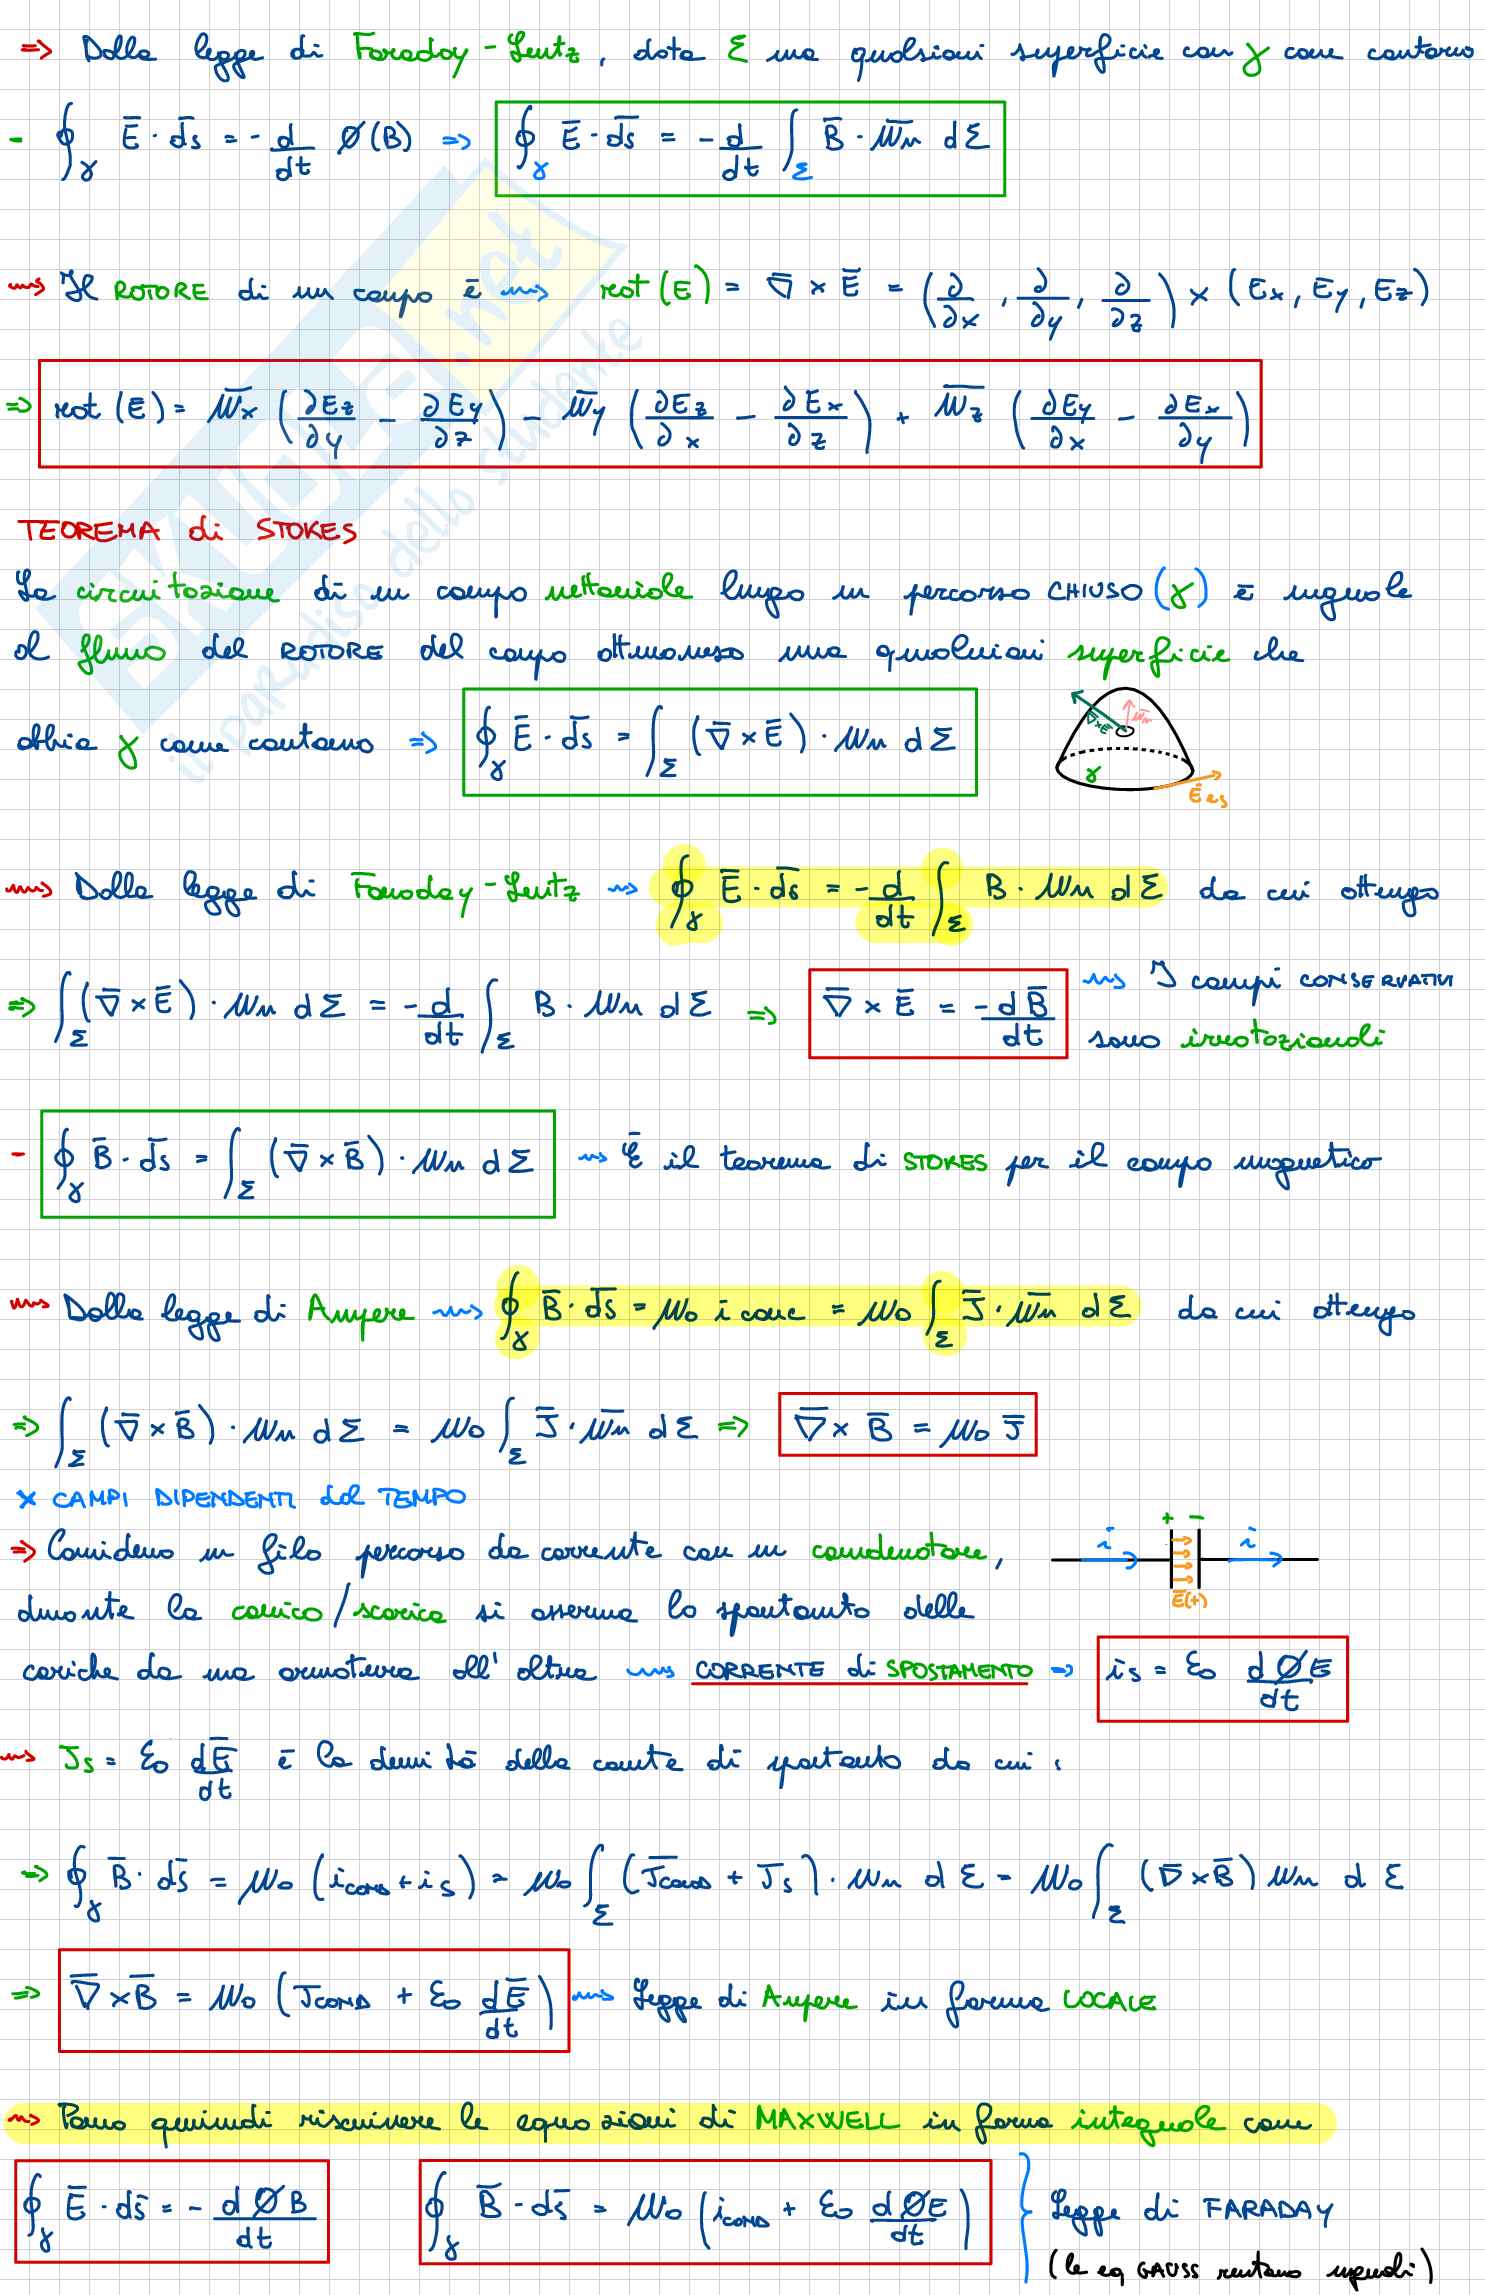 ⇒ Dalla legge di Faraday-Lentz, data Σ una qualsiasi superficie con γ come contorno
- ∮_γ E̅ · d̅s̅ = - d/dt Ø(B) ⇒ ∮_γ E̅ · d̅s̅ = - d/dt ∫_Σ B̅ · u̅n dΣ
⇝ Il ROTORE di un campo è ⇝ rot(E) = ∇̅ × E̅ = (∂/∂x, ∂/∂y, ∂/∂z) × (Ex, Ey, Ez)
⇒ rot(E) = u̅x (∂Ez/∂y - ∂Ey/∂z) - u̅y (∂Ez/∂x - ∂Ex/∂z) + u̅z (∂Ey/∂x - ∂Ex/∂y)
TEOREMA di STOKES
La circuitazione di un campo vettoriale lungo un percorso CHIUSO (γ) è uguale
al flusso del ROTORE del campo attraverso una qualsiasi superficie che
abbia γ come contorno ⇒ ∮_γ E̅ · d̅s̅ = ∫_Σ (∇̅ × E̅) · un dΣ
∇×E u̅n γ E̅ es
⇝ Dalla legge di Faraday-Lentz ⇝ ∮_γ E̅ · d̅s̅ = - d/dt ∫_Σ B · un dΣ da cui ottengo
⇒ ∫_Σ (∇̅ × E̅) · un dΣ = - d/dt ∫_Σ B · un dΣ ⇒ ∇̅ × E̅ = - dB̅/dt ⇝ I campi CONSERVATIVI
sono irrotazionali
- ∮_γ B̅ · d̅s̅ = ∫_Σ (∇̅ × B̅) · un dΣ ⇝ È il teorema di STOKES per il campo magnetico
⇝ Dalla legge di Ampere ⇝ ∮_γ B̅ · d̅s̅ = μ0 i conc = μ0 ∫_Σ J̅ · u̅n dΣ da cui ottengo
⇒ ∫_Σ (∇̅ × B̅) · un dΣ = μ0 ∫_Σ J̅ · u̅n dΣ ⇒ ∇̅ × B̅ = μ0 J̅
× CAMPI DIPENDENTI dal TEMPO
⇒ Considero un filo percorso da corrente con un condensatore,
+ -
i i
E̅(t)
durante la carica/scarica si osserva lo spostamto delle
cariche da una armatura all'altra ⇝ CORRENTE di SPOSTAMENTO ⇒ is = ε0 dØE/dt
⇝ Js = ε0 dE̅/dt è la densità della corrnte di spostamto da cui :
⇒ ∮_γ B̅ · ds̅ = μ0 (iCOND + is) = μ0 ∫_Σ (J̅COND + J̅s) · un dΣ = μ0 ∫_Σ (∇̅ × B̅) un dΣ
⇒ ∇̅ × B̅ = μ0 (JCOND + ε0 dE̅/dt) ⇝ Legge di Ampere in forma LOCALE
⇝ Posso quindi riscrivere le equazioni di MAXWELL in forma integrale come
∮_γ E̅ · ds̅ = - dØB/dt ∮_γ B̅ · ds̅ = μ0 (iCOND + ε0 dØE/dt) Legge di FARADAY
(le eq GAUSS restano uguali)
SKUOLA.net
il paradiso dello studente